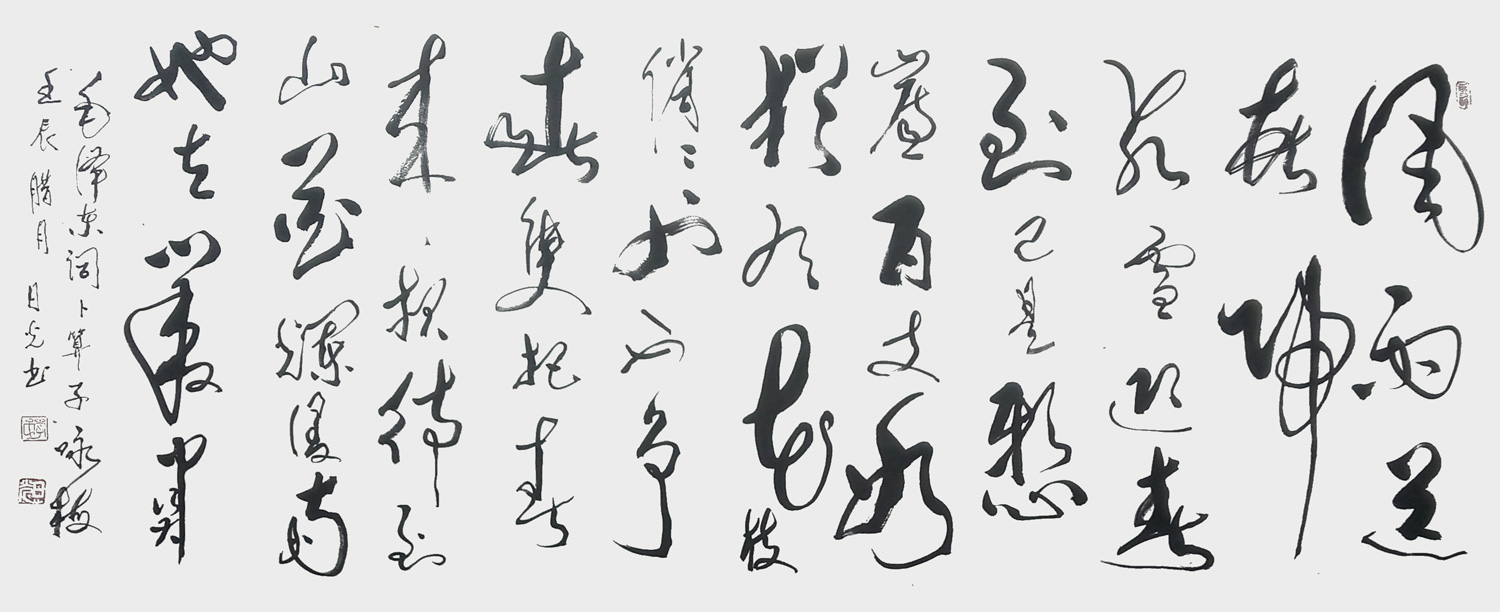 風雨送
春歸
飛雪迎春
到已是懸
崖百丈冰
猶有花枝
俏〻也不争
春隻把春
来報待到
山花爛漫時
她在叢中笑
毛泽东词卜算子咏梅
壬辰腊月月光书